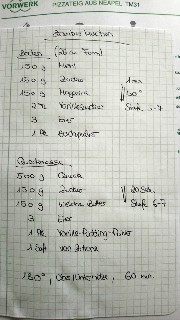 VORWERK PIZZATEIG AUS NEAPEL TM31
Boden (26er Form)
150 g Mehl
150 g Zucker 1 min
150 g Margarine 50°
2 TL Vanillezucker Stufe 5-7
3 Eier
1 Pk. Backpulver
Quarkmasse
500 g Quark
150 g Zucker 20 Sek.
150 g weiche Butter Stufe 5-7
3 Eier
1 Pk. Vanille-Pudding-Pulver
1 Saft von Zitrone
180°, Ober/Unterhitze, 60 min.